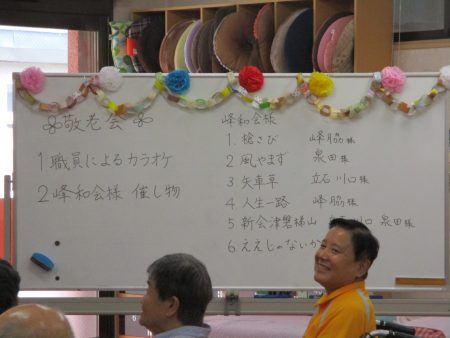 敬老会
1. 職員によるカラオケ
2. 峰和会様 催し物
峰和会様
1. 槍さび 峰脇様
2. 風やまず 泉田様
3 矢車草 立石 川口様
4 人生一路 峰脇様
5 新会津磐梯山 川口 泉田様
6 ええじゃないか